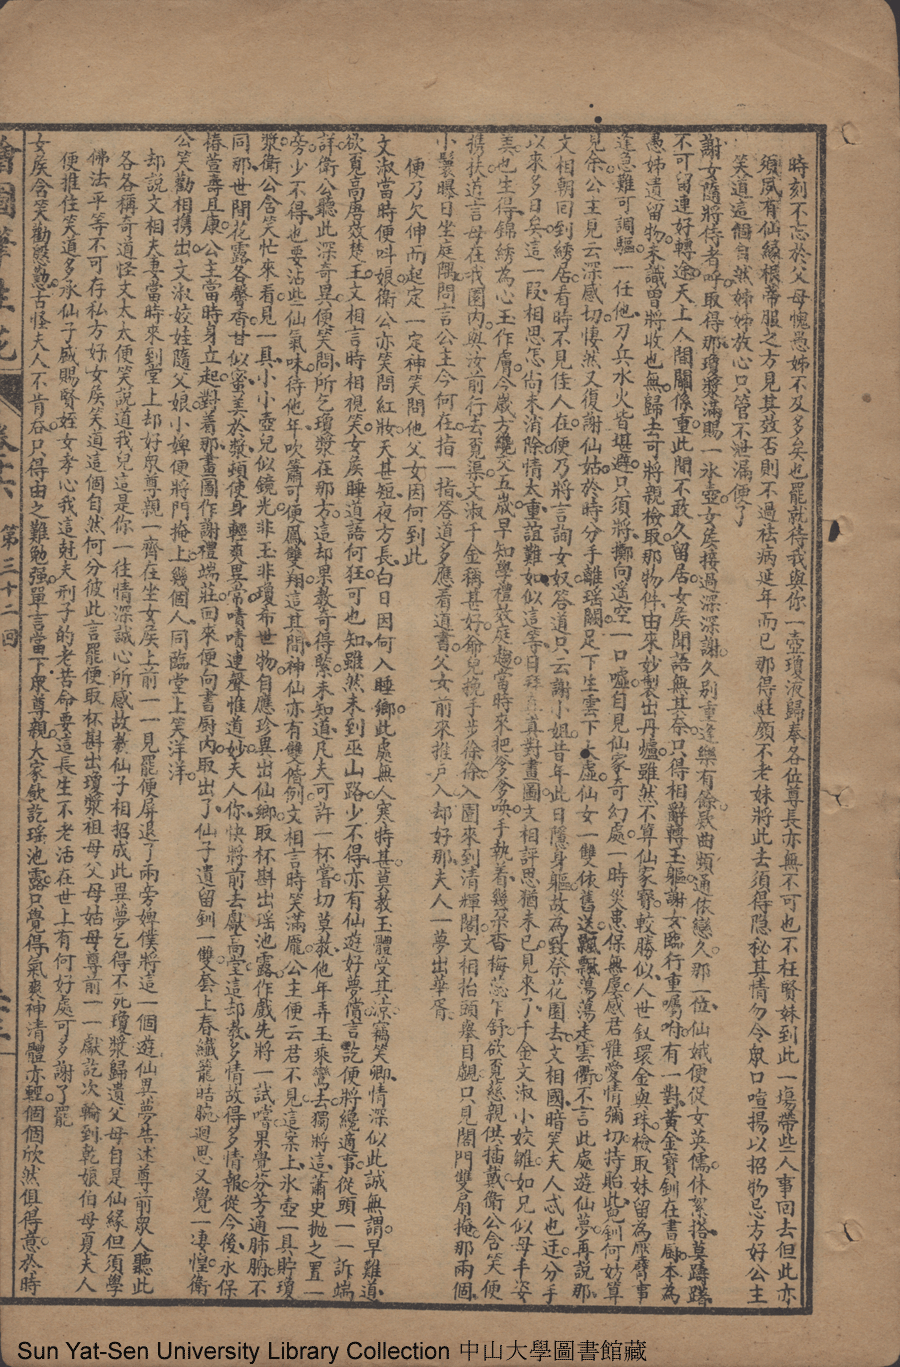 時刻不忘於父母愧愚姊不及多多矣也罷就待我與你一壺瓊液歸奉各位尊長亦無不可也不枉賢妹到此一塲帶些人事回去但此亦
須夙有仙緣根蒂服之方見其效否則不過祛病延年而已那得駐顏不老妹將此去須得隱秘其情勿令眾口喧揚以招物忌方好公主
笑道這個自然姊姊放心只管不泄漏便了
謝女隨將侍者呼取得那瓊漿滿賜一氷壺女矦接過深深謝久别重逢樂有餘衷曲頻通依戀久那一位仙娥便促女英儒休絮搭莫躊躇
不可留連好轉途天上人間關係重此間不敢久留居女矦聞語無其奈只得相辭轉玉軀謝女臨行重囑咐有一對黃金寶釧在書厨本為
愚姊遺留物未識曽將收也無歸去可將親檢取那物件由來妙製出丹爐雖然不算仙家寶較勝似人世釵環金與珠檢取妹留為壓臂事
逢急難可調驅一任他刀兵水火皆堪避只須將擲向遥空一口噓自見仙家奇幻處一時災患保無虞感君雅愛情彌切持貽此釧何妨算
見余公主見云深感切悽然又復謝仙姑於時分手離瑶闕足下生雲下太虛仙女一雙依舊送飄飄蕩蕩走雲衢不言此處遊仙夢再說那
文相朝回到綉居看時不見佳人在便乃將言詢女奴答道只云謝小姐昔年此日隱身軀故為致祭花園去文相聞暗笑夫人忒也迂分手
以來多日矣這一段相思怎尚未消除情太重誼難如似這等日拜真真對畫圖文相評思猶未已見來了千金文淑小姣雛如兄似母手姿
美也生得錦綉為心玉作膚今歲方纔交五歲早知學禮效庭趨當時來把爹爹喚手執着幾朵香梅蕊乍舒欲覓慈親供插戴衛公含笑便
携扶道言母在後園内與汝前行去覓渠文淑千金稱甚好爺兒挽手步徐徐入園來到清輝閣文相抬頭舉目覷只見閣門雙扇掩那兩個
小鬟曝日坐庭隅問言公主今何在指一指答道多應看道書父女前來推戶入却好那夫人一夢出華胥
便乃欠伸而起定一定神笑問他父女因何到此
文淑當時便呌娘衛公亦笑問紅妝天甚短夜方長白日因何入睡鄉此處無人寒特甚莫教玉體受其凉竊笑卿情深似此誠無謂早難道
欲覓高唐效楚王文相言時相視笑女矦睡道語何狂可也知雖然未到巫山路少不得亦有仙遊好夢償言訖便將纔適事從頭一一訴端
詳衛公聽此深奇異便笑問所乞瓊漿在那方這却果教奇得緊未知道凡夫可許一杯嘗切莫敎他年弄玉乘鸞去獨將這蕭史拋之置一
旁少不得也要沾些仙氣味待他年吹簫可便鳳雙翔這其間神仙亦有雙脩例文相言時笑滿龐公主便云君不見這案上氷壺一具貯瓊
漿衛公含笑忙來看見一具小小壺兒似鏡光非玉非瓊希世物自應珍異出仙鄉取杯斟出瑶池露作戲先將一試嘗果覺芬芳通肺腑不
同那世間花露各馨香甘似蜜美於漿頓使身輕爽異常嘖嘖連聲惟道妙夫人你快將前去獻高堂這却教多情故得多情報從今後永保
椿萱壽且康公主當時身立起對着那畫圖作謝禮端莊回來便向書厨内取出了仙子遺留釧一雙套上春纖籠皓腕廻思又覺一凄惶衛
公笑勸相携出文淑姣娃隨父娘小婢便將門掩上幾個人同臨堂上笑洋洋
却說文相夫妻當時來到堂上却好眾尊親一齊在坐女矦上前一一見罷便屏退了兩旁婢僕將這一個遊仙異夢告述尊前眾人聽此
各各稱奇道怪文太太便笑說道我兒這是你一往情深誠心所感故教仙子相招成此異夢乞得不死瓊漿歸遺父母自是仙緣但須學
佛法平等不可存私方好女矦笑道這個自然何分彼此言罷便取杯斟出瓊漿祖母父母姑母尊前一一獻訖次輪到乾娘伯母夏夫人
便推住笑道多承仙子感賜賢姪女孝心我這尅夫刑子的老苦命要這長生不老活在世上有何好處可多謝了罷
女矦含笑勸慇懃古怪夫人不肯吞只得由之難勉强單言當下眾尊親大家飲訖瑶池露只覺得氣爽神清體亦輕個個欣然俱得意於時
繪圖筆生花
卷十六
第三十二回
Sun Yat-Sen University Library Collection 中山大學圖書館藏